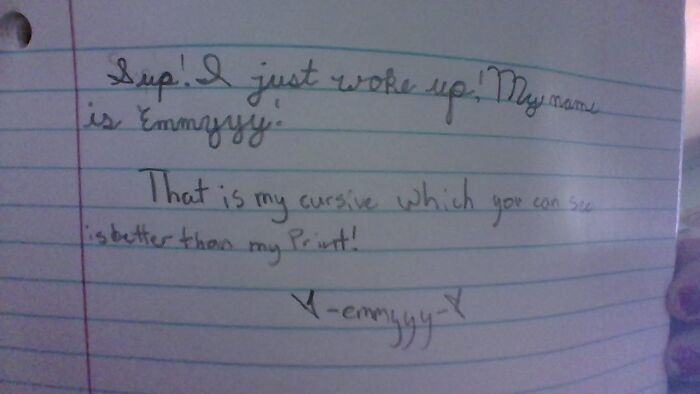 Sup! I just woke up! My name
is Emmyyy!
That is my cursive which you can see
is better than my Print!
-emmyyy-